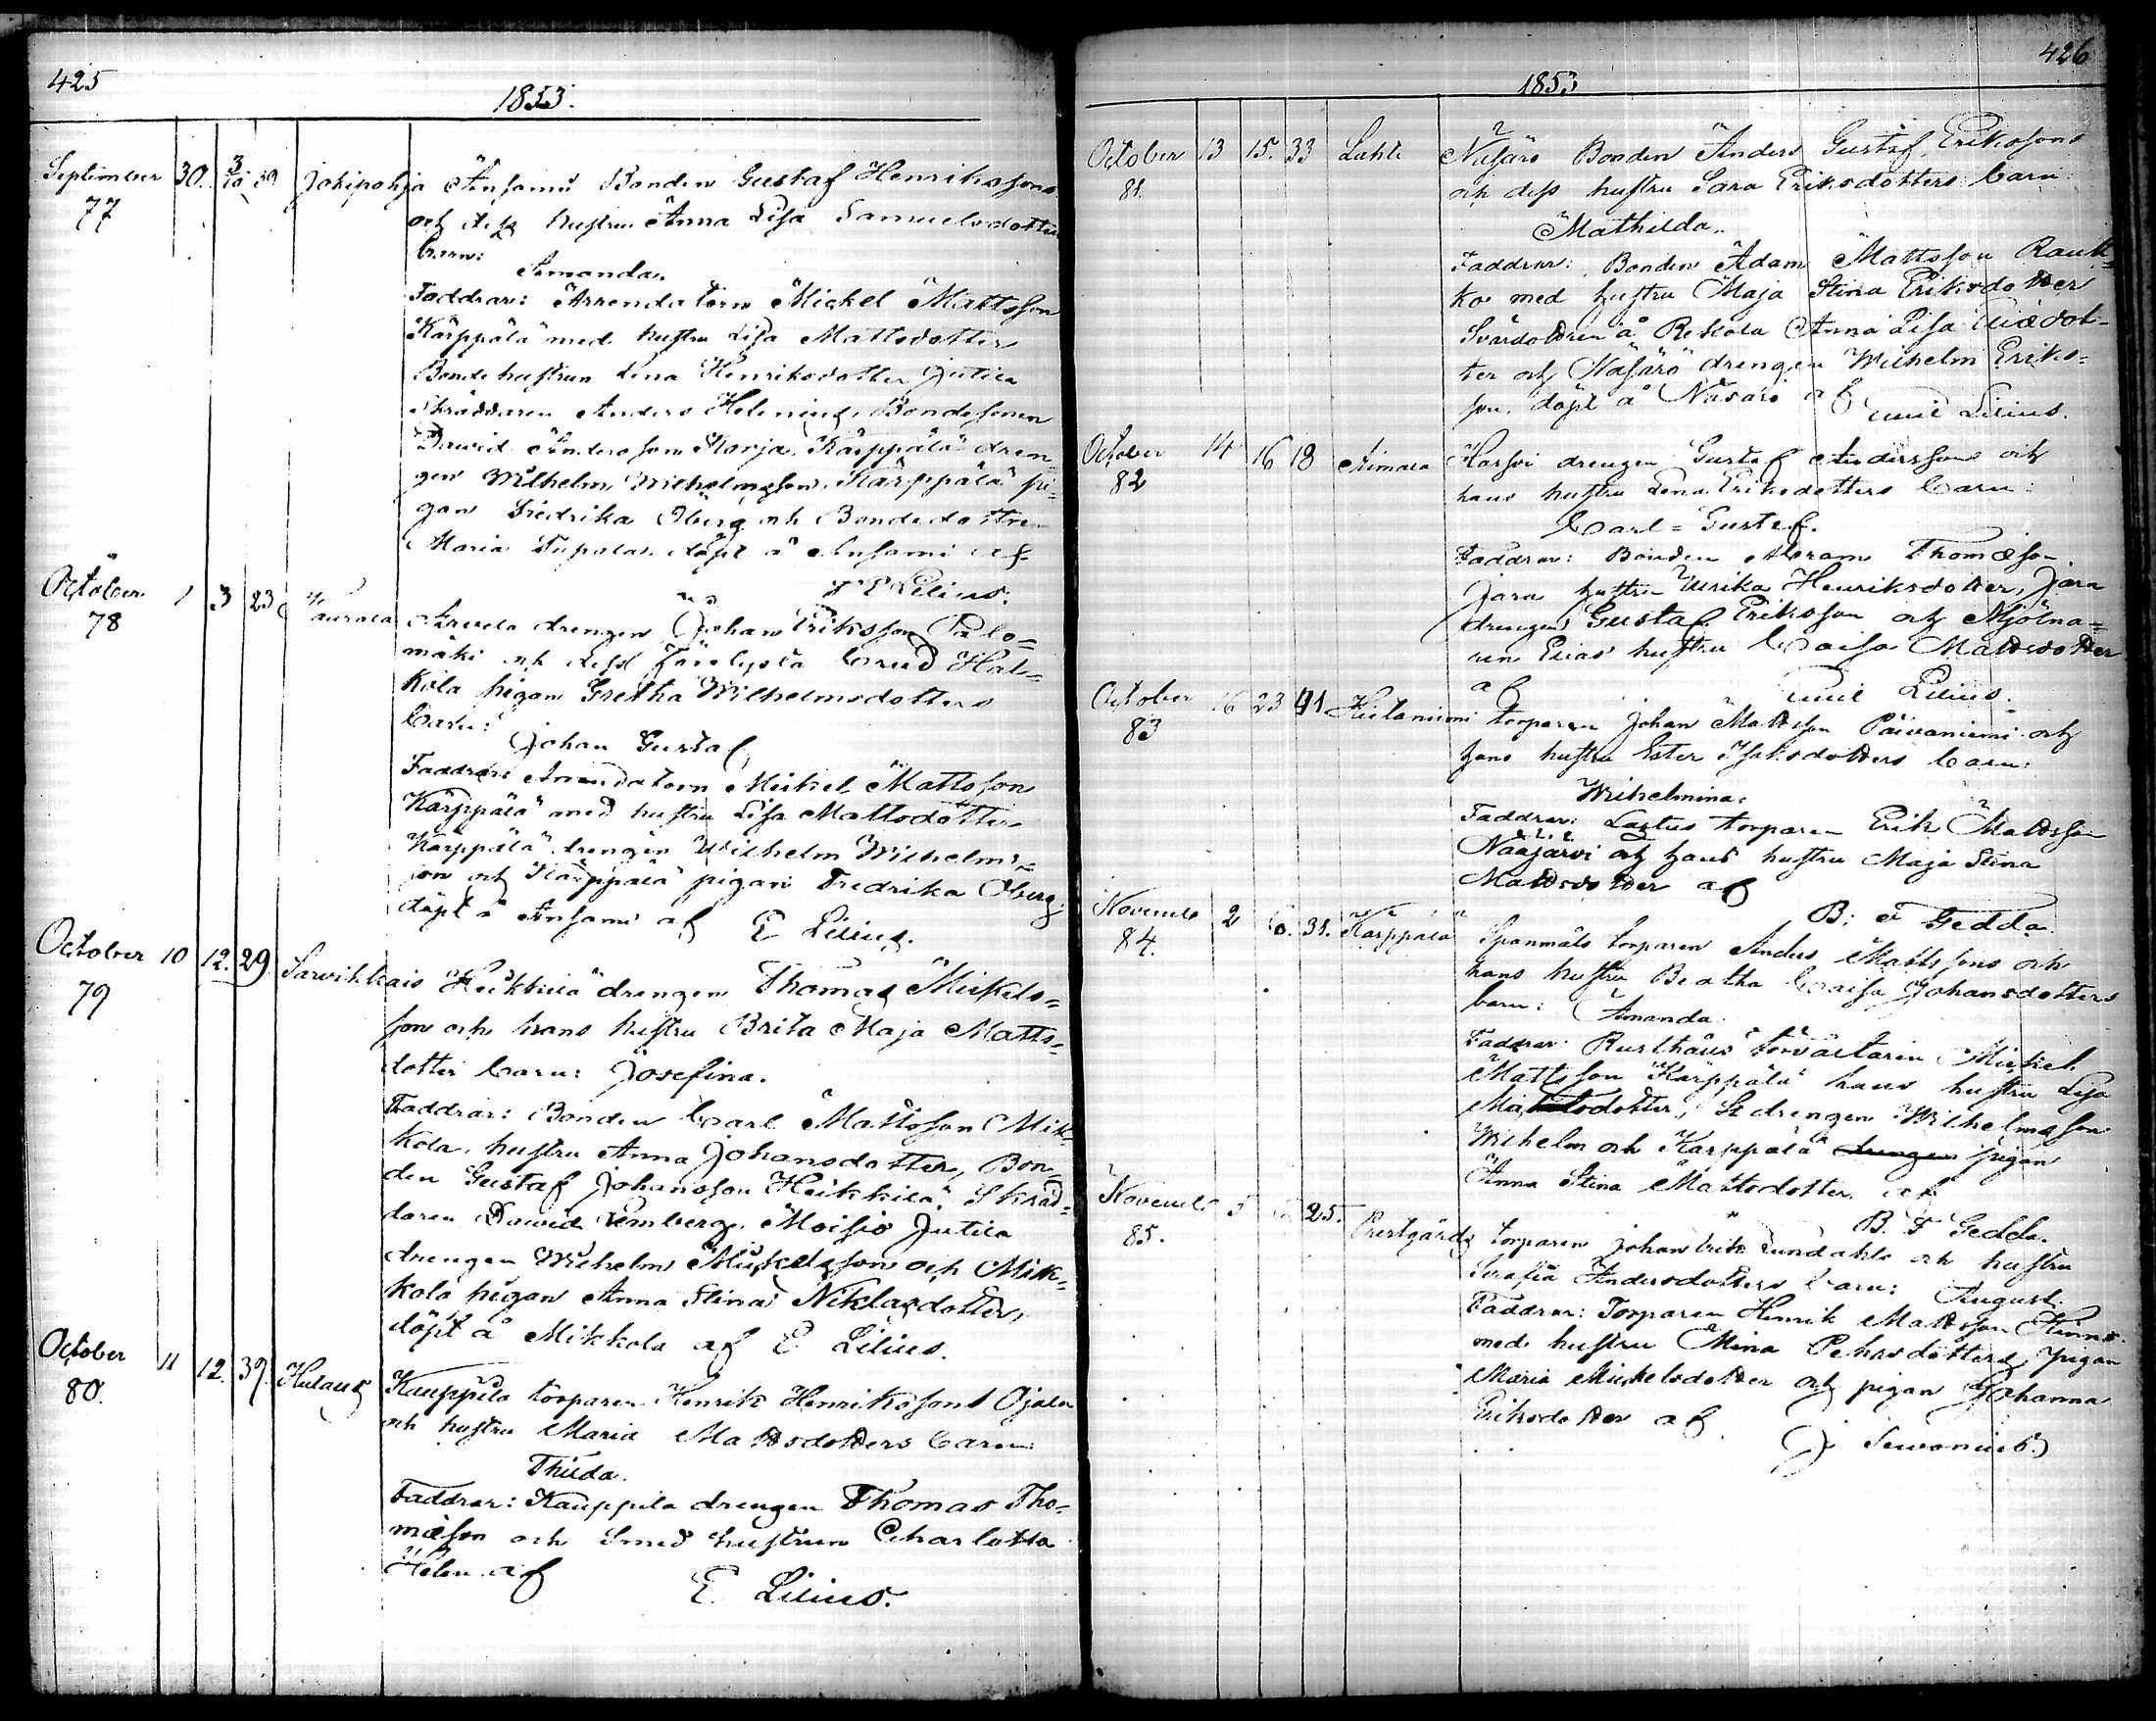 425
1853.
September 30. 3/10 39 Jokipohja Ansamu Bonden Gustaf Henrikssons
77 och dess hustru Anna Lisa Samuelsdotters
barn:
Amanda.
Faddrar: Arrendatorn Mickel Mattsson
Kärppälä med hustru Lisa Mattsdotter
Bonde hustrun Lena Henriksdotter Jutila
Skräddaren Anders Helenius, Bondesonen
Dawid Andersson Korja, Kärppälä dren
gen Wilhelm Wilhelmsson, Kärppälä pi-
gan Fredrika Öberg och Bondedottren
Maria Tupala. döpt å Ansami af
E Lilius.
October 1 3 23 Taurala drengen Johan Eriksson Palo=
78 mäki och dess
kola pigan Gretha Wilhelmsdotters
barn:
Johan Gustaf
Faddrar Arrendatorn Mickel Mattsson
Kärppälä med hustru Lisa Mattsdotter
Kärppälä drengen Wilhelm Wilhelms-
son och Kärppälä pigan Fredrika Öberg.
döpt å Ansami af E Lilius.
October 10 12. 29. Sarvikkais Heikkilä drengen Thomas Mickels=
79 son och hans hustru Brita Maja Matts=
dotter barn: Josefina.
Faddrar: Bonden Carl Mattsson Mik-
kola, hustru Anna Johansdotter, Bon-
den Gustaf Johansson Heikkilä. Skräd=
daren Dawid Lemberg. Moisio Jutila
drengen Wilhelm Mickelsson och Mik-
kola pigan Anna Stina Niklasdotter,
döpt å Mikkola af E Lilius.
October 11 12. 39. Hulaus Kauppila torparen Henrik Henrikssons Ojala
80. och hustru Maria Mattsdotters barn:
Thilda.
Faddrar: Kauppila drengen Thomas Tho-
mæson och Smed hustrun Charlotta
Helen af
E. Lilius.
426
1853
October 13 15. 33 Lahti Näsärö Bonden Anders Gustaf Erikssons
81. och dess hustru Sara Eriksdotters barn
Mathilda.
Faddrar: Bonden Adam Mattsson Rauk=
ko med hustru Maja Stina Eriksdotter
å Rekola Anna Lisa
ter och Näsärö drengen Wilhelm Eriks-
son. döpt å Näsärö af Emil Lilius.
October 14 16 18 Aimala drengen Gustaf Andersson och
82 hans hustru Lena Eriksdotters barn:
Carl=Gustaf.
Faddrar: Bonden Abram Thomæson
Jara hustru Ulrika Henriksdotter, Jara
drengen Gustaf Eriksson och Mjölna=
ren Elias hustru Caisa Mattsdotter
af Emil Lilius.
October 16 23 41 Hietaniemi torparen Johan Mattsson Päivaniemi och
83 hans hustru Ester Isaksdotters barn:
Wilhelmina.
Faddrar: Lastus torparen Erik Mattsson
Naajärvi och hans hustru Maja Stina
Mattsdotter af
B: F Gedda.
Novemb 2 6. 31. Kärppälä Spånmåls torparen Anders Mattssons och
84. hans hustru Beatha Caisa Johansdotters
barn: Amanda.
Faddrar: Rusthålls förvaltaren Mickel
Mattsson Kärppälä hans hustru Lisa
Mattsdotter, drengen Wilhelmsson
Wilhelm och Kärppälä drengen pigan
Anna Stina Mattsdotter af
B. F Gedda.
Novemb 5 25. Prestgårds torparen Johan Erik Lundahls och hustru
85. Serafia Andersdotters barn: August.
Faddrar: Torparen Henrik Mattsson
med hustru Mina Pehrsdotters, pigan
Maria Mickelsdotter och pigan Johanna
Eriksdotter af
J